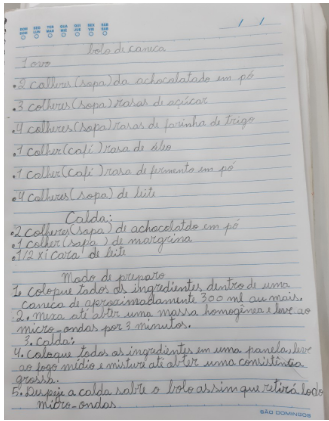 bolo de caneca
1 ovo
.2 colhers (sopa) da achocolatado em pó
.3 colheres (sopa) rasas de açúcar
.4 colheres (sopa) rasas de farinha de trigo
.1 colher (café) rasa de óleo
.1 colher (café) rasa de fermento em pó
.4 colheres (sopa) de leite
Calda:
.2 colheres (sopa) de achocolatdo em pó
.1 colher (sapa) de margrina
.1/2 xicara de leite
Modo de preparo
1. coloque todos os ingredientes dentro de uma
caneca de aproximadamente 300 ml ou mais.
2. Mexa até obter uma massa homogênea e leve ao
micro-ondas por 3 minutos.
3. Calda:
4. Coloque todos os ingredientes em uma panela, leve
ao fogo médio e misture até obter uma consistência
grossa.
5. Despeje a calda sobte o bolo assim que retirá-lo do
micro-ondas
SÃO DOMINGOS